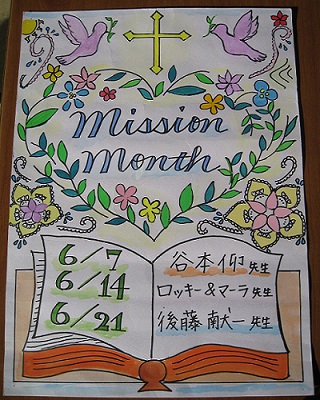 Mission
Month
6/7 谷本仰先生
6/14 ロッキー&マーラ先生
6/21 後藤献一先生